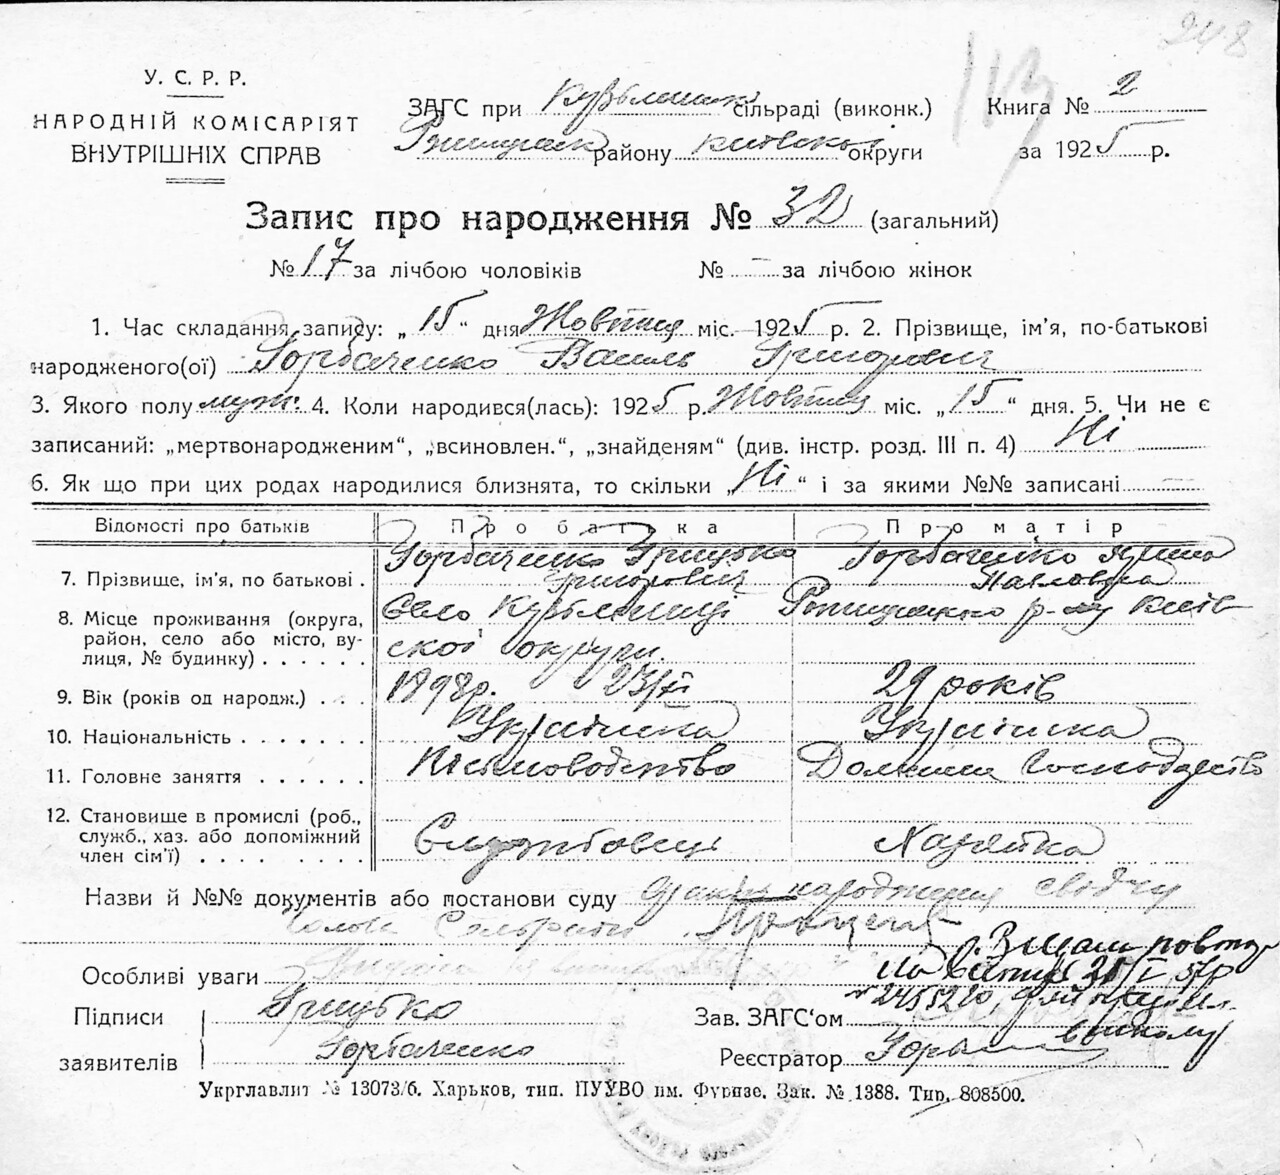 248
113
У. С. Р. Р.
НАРОДНІЙ КОМІСАРІЯТ
ВНУТРІШНІХ СПРАВ
ЗАГС при сільраді (виконк.)
району київської округи
Книга № 2
за 1925 р.
Запис про народження № 32 (загальний)
№ 17 за лічбою чоловіків № – за лічбою жінок
1. Час складання запису: „ 15 “ дня Жовтня міс. 1925 р. 2. Прізвище, ім’я, по-батькові
народженого(ої) Горбаченко Василь Григорович
3. Якого полу муж. 4. Коли народився(лась): 1925 р. Жовтня міс. „ 15 “ дня. 5. Чи не є
записаний: „мертвонародженим“, „всиновлен.“, „знайденям“ (див. інстр. розд. III п. 4) Ні
6. Як що при цих родах народилися близнята, то скільки „ Ні “ і за якими №№ записані —
Відомості про батьків Про батька Про матір
7. Прізвище, ім’я, по батькові . Горбаченко Грицько Григорович Горбаченко Ярина Павловна
8. Місце проживання (округа,
район, село або місто, ву-
лиця, № будинку) . . . . . . Село р-ну Київ
ської округи.
9. Вік (років од народж.) . . . 1898р. 29 років
10. Національність . . . . . . . Українка Українка
11. Головне заняття . . . . . . Письмоводство Домашнє Господарство
12. Становище в промислі (роб.,
служб., хаз. або допоміжний
член сім’ї) . . . . . . . . Службовець Хазяйка
Назви й №№ документів або постанови суду народження свідчу
Голова Сільради
Особливі уваги
Видан повтор
на 31/I 57р
Підписи
заявителів
Грицько
Горбаченко
Зав. ЗАГС‘ом
Реєстратор
Укрглавлит № 13073/6. Харьков, тип. ПУУВО им. Фрунзе. Зак. № 1388. Тир. 808500.